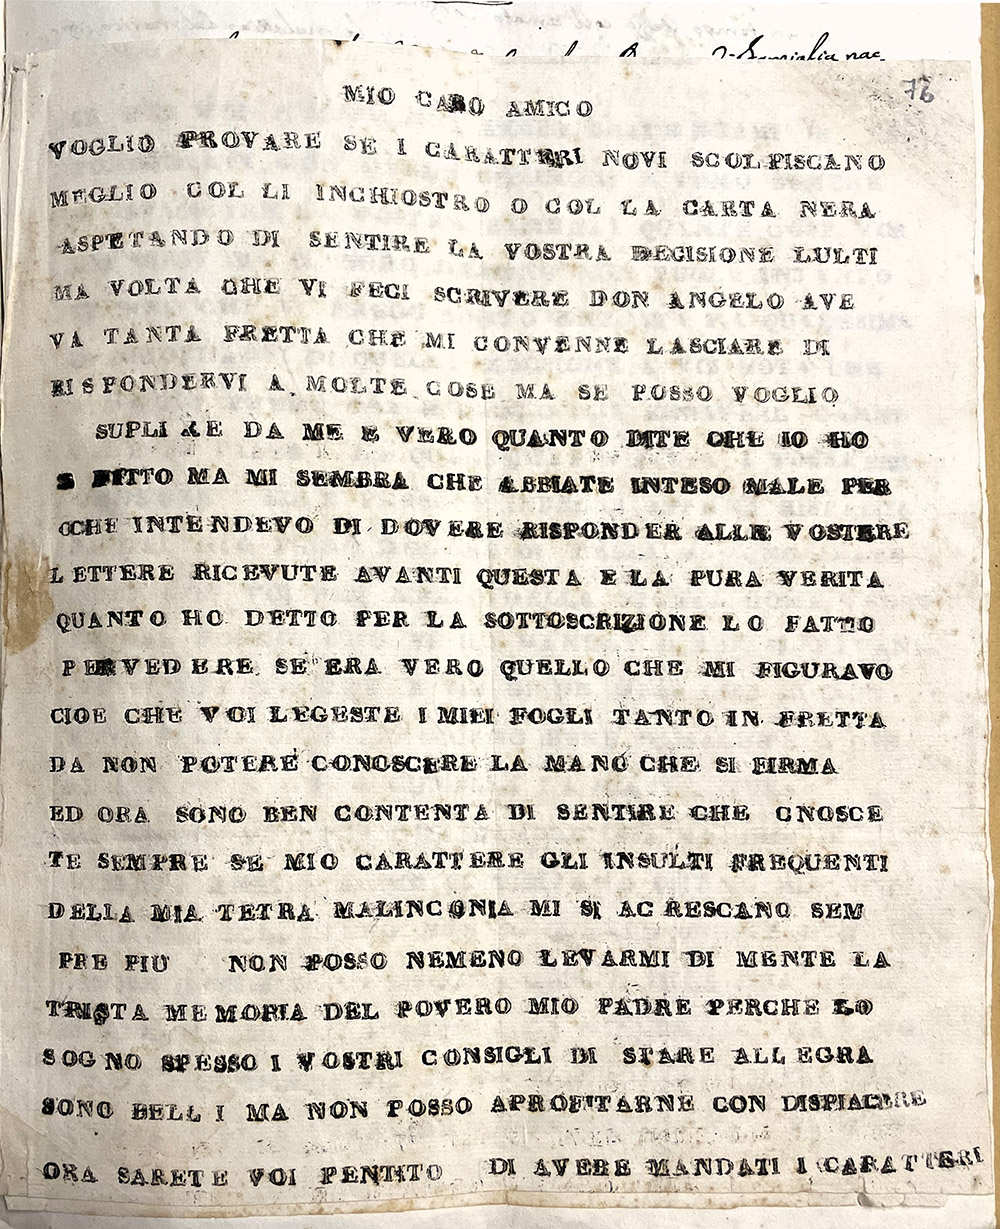 Famiglia nac-
76
MIO CARO AMICO
VOGLIO PROVARE SE I CARATTERI NOVI SCOLPISCANO
MEGLIO COL LI INCHIOSTRO O COL LA CARTA NERA
ASPETANDO DI SENTIRE LA VOSTRA DECISIONE LULTI
MA VOLTA CHE VI FECI SCRIVERE DON ANGELO AVE
VA TANTA FRETTA CHE MI CONVENNE LASCIARE DI
RISPONDERVI A MOLTE COSE MA SE POSSO VOGLIO
SUPLIRE DA ME E VERO QUANTO DITE CHE IO HO
DITTO MA MI SEMBRA CHE ABBIATE INTESO MALE PER
CHE INTENDEVO DI DOVERE RISPONDER ALLE VOSTERE
LETTERE RICEVUTE AVANTI QUESTA E LA PURA VERITA
QUANTO HO DETTO PER LA SOTTOSCRIZIONE LO FATTO
PER VEDERE SE ERA VERO QUELLO CHE MI FIGURAVO
CIOE CHE VOI LEGESTE I MIEI FOGLI TANTO IN FRETTA
DA NON POTERE CONOSCERE LA MANO CHE SI FIRMA
ED ORA SONO BEN CONTENTA DI SENTIRE CHE CNOSCE
TE SEMPRE SE MIO CARATTERE GLI INSULTI FREQUENTI
DELLA MIA TETRA MALINCONIA MI SI ACRESCANO SEM
PRE PIU NON POSSO NEMENO LEVARMI DI MENTE LA
TRISTA MEMORIA DEL POVERO MIO PADRE PERCHE LO
SOGNO SPESSO I VOSTRI CONSIGLI DI STARE ALLEGRA
SONO BELLI MA NON POSSO APROFITARNE CON DISPIACERE
ORA SARETE VOI PENTITO DI AVERE MANDATI I CARATTERI